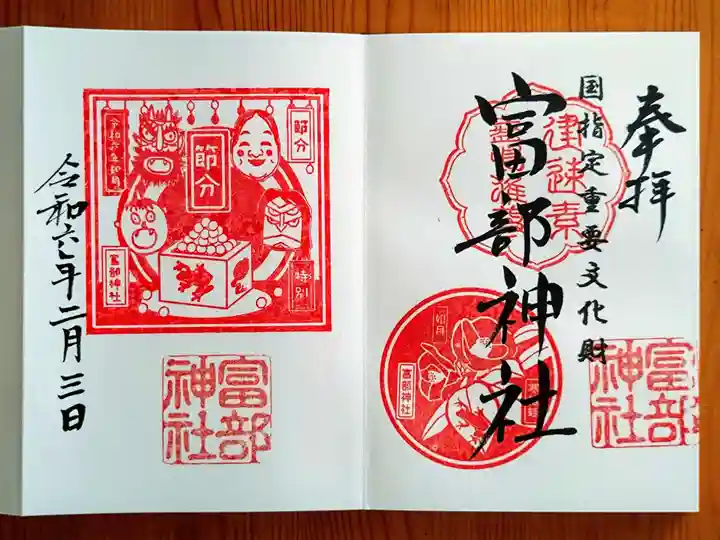 奉拝
国指定重要文化財
富部神社
建速素
如月
富部神社
富部
神社
節分
節分
令和六年如月
特別
富部神社
富部
神社
令和六年二月三日